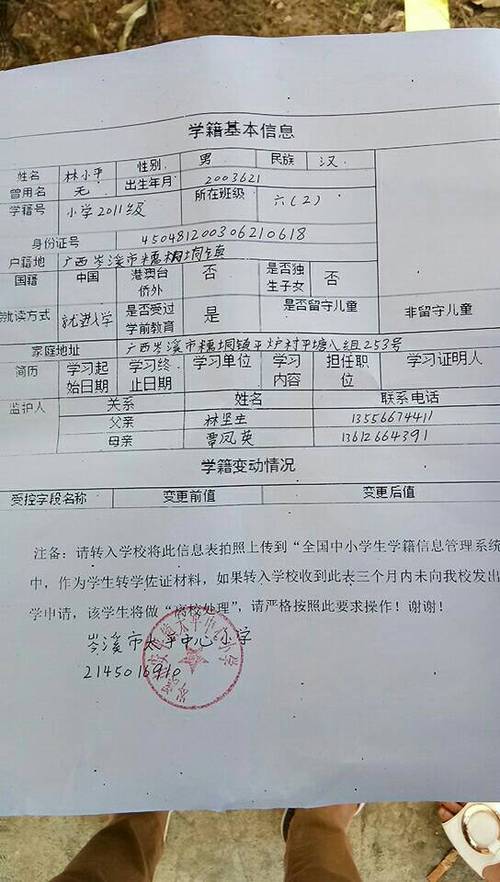 学籍基本信息
姓名 林小平 性别 男 民族 汉
曾用名 无 出生年月 2003621 所在班级 六(2)
学籍号 小学2011级
身份证号 450481200306210618
户籍地 广西岑溪市糯垌镇
国籍 中国 港澳台侨外 否 是否独生子女 否
就读方式 就近入学 是否受过学前教育 是 是否留守儿童 非留守儿童
家庭地址 广西岑溪市糯垌镇平炉村平塘八组253号
简历 学习起始日期 学习终止日期 学习单位 学习内容 担任职位 学习证明人
监护人 关系 姓名 联系电话
父亲 林坚生 13556674411
母亲 覃凤英 13612664391
学籍变动情况
受控字段名称 变更前值 变更后值
注备：请转入学校将此信息表拍照上传到“全国中小学生学籍信息管理系统
中，作为学生转学佐证材料，如果转入学校收到此表三个月内未向我校发出
学申请，该学生将做“ 校处理”，请严格按照此要求操作！谢谢！
岑溪市太平中心小学
2145016910